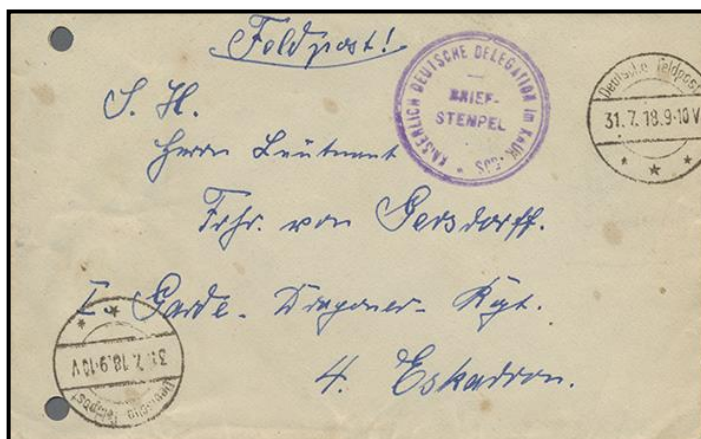 Feldpost!
KAISERLICH DEUTSCHE DELEGATION im KAUKASUS
BRIEF-
STEMPEL
Deutsche Feldpost
31.7.18.9-10V
S. H.
Herrn Leutnant
Frhr. von Gersdorff.
I. Garde-Dragoner-Rgt.
4. Eskadron.
Deutsche Feldpost
31.7.18.9-10V